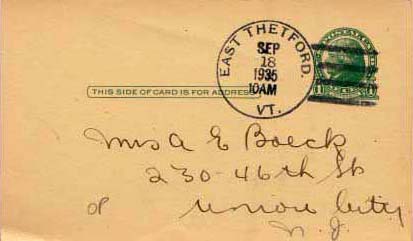 EAST THETFORD.
SEP
18
1935
10AM
VT.
THIS SIDE OF CARD IS FOR ADDRESS
Mrs A E Boeck
230-46th St
of Union City
N. J.